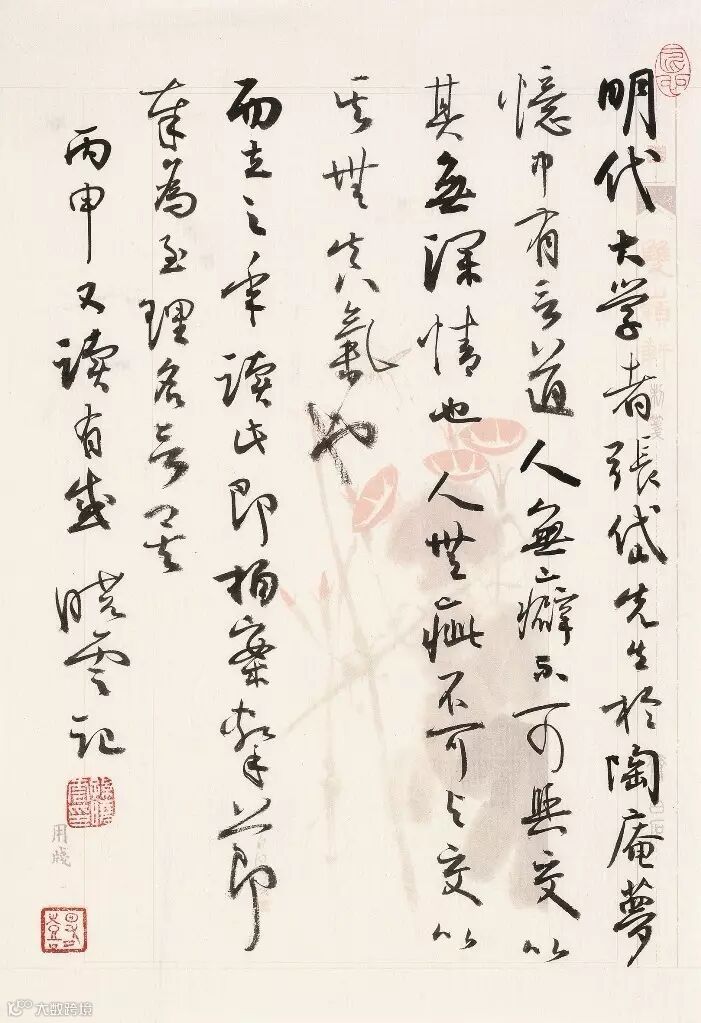 明代大学者張岱先生於陶庵夢
憶中有言道人無癖不可與交以
其無深情也人無疵不可与交以
其無真氣也
而立之年读此即拍案擊节即
奉為至理名言矣
丙申又读有感 晓雲记
用牋
大数跨境